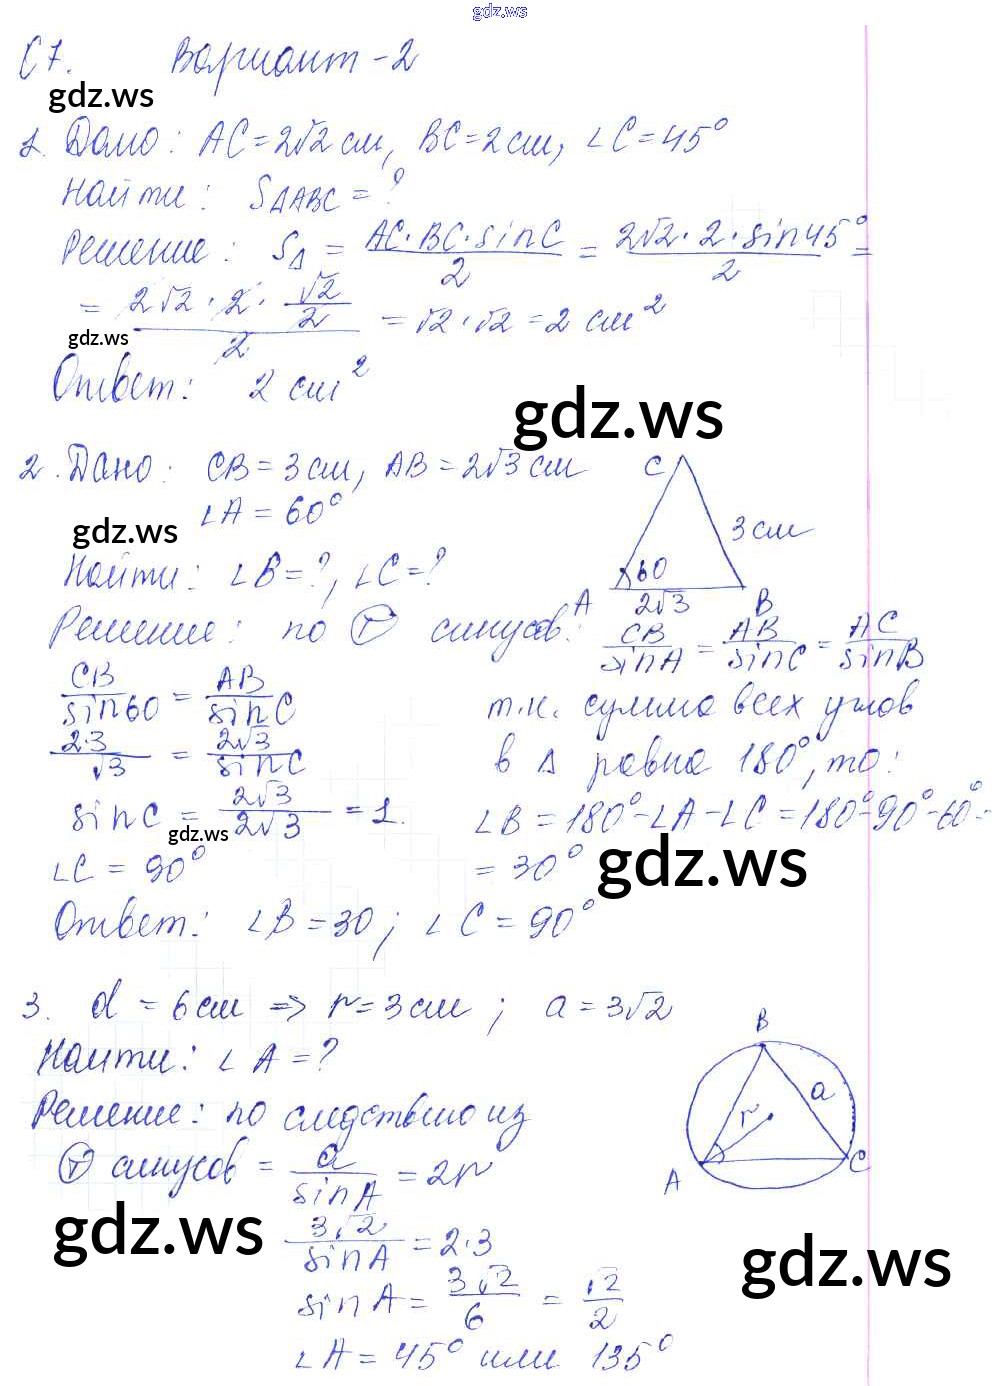 gdz.ws
С7. Вариант-2
gdz.ws
1. Дано: AC=2√2 см, BC=2 см, ∠C=45°
Найти: S△ABC=?
Решение: S△ = AC·BC·sinC/2 = 2√2·2·sin45°/2 =
= 2√2·2·√2/2/2 = √2·√2=2 см²
gdz.ws
Ответ: 2 см²
gdz.ws
2. Дано: CB=3 см, AB=2√3 см
∠A=60°
gdz.ws
C
3 см
60
A 2√3 B
Найти: ∠B=?, ∠C=?
Решение: по Ⓣ синусов: CB/sinA = AB/sinC = AC/sinB
CB/sin60 = AB/sinC
2·3/√3 = 2√3/sinC
sinC = 2√3/2√3 = 1.
gdz.ws
∠C = 90°
т.к. сумма всех углов
в △ равна 180°, то:
∠B=180°-∠A-∠C=180°-90°-60°=
= 30°
gdz.ws
Ответ: ∠B=30; ∠C=90°
3. d = 6см => r=3см; a=3√2
Найти: ∠A=?
B
a
r
A
C
Решение: по следствию из
Ⓣ синусов = a/sinA = 2r
gdz.ws
3√2/sinA = 2·3
gdz.ws
sinA = 3√2/6 = √2/2
∠A=45° или 135°